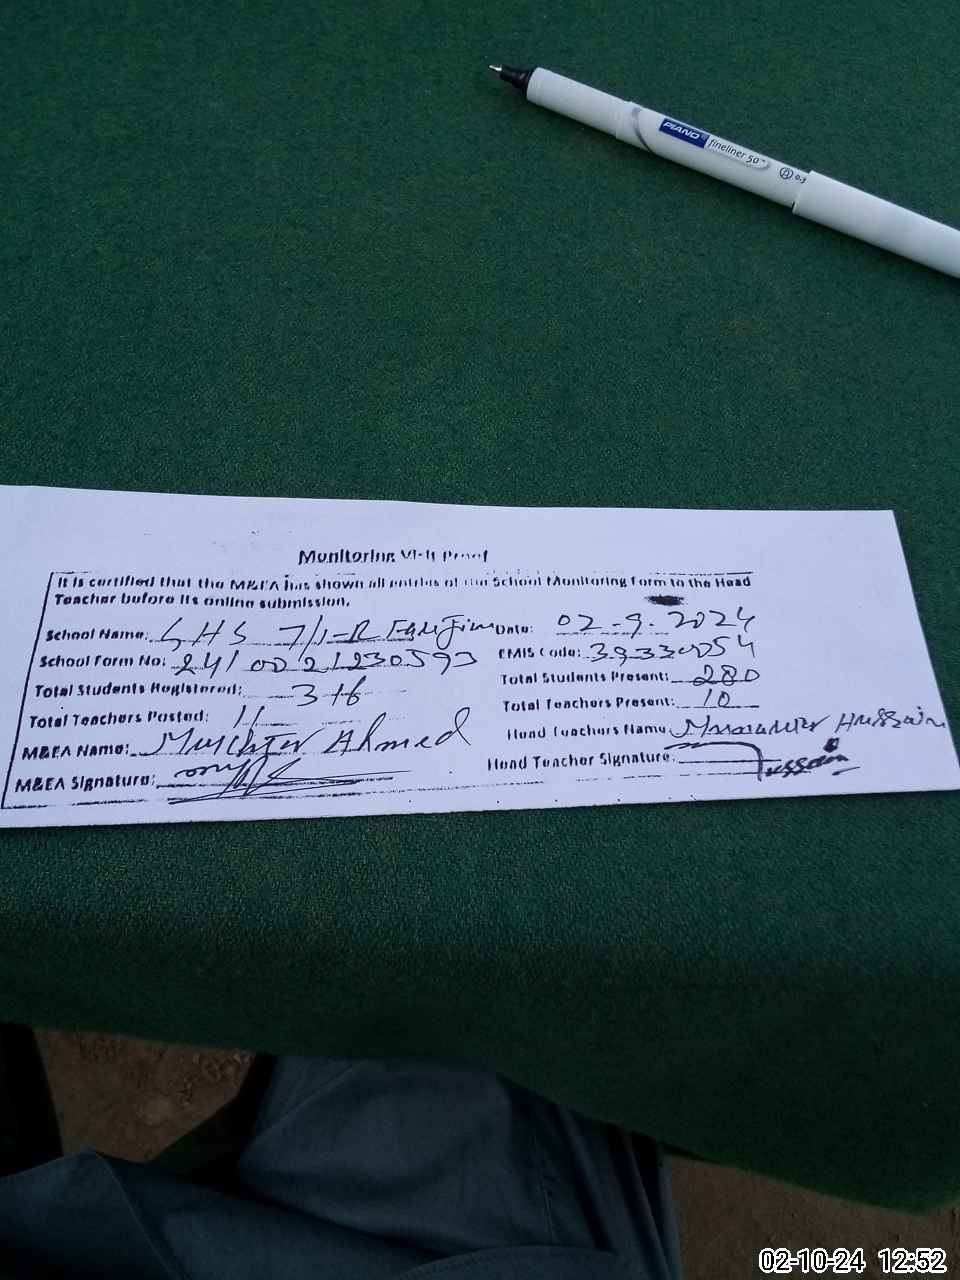 PIANO fineliner 50 0.5
Monitoring Visit Proof
It is certified that the M&EA has shown all entries of the School Monitoring Form to the Head
Teacher before its online submission.
School Name: GHS 7/1-R Date: 02-9-2024
School Form No: EMIS Code:
Total Students Registered: 316 Total Students Present: 280
Total Teachers Posted: 11 Total Teachers Present: 10
M&EA Name: Mukhtar Ahmed Head Teachers Name: Hussain
M&EA Signature: Head Teacher Signature: Hussain
02-10-24 12:52